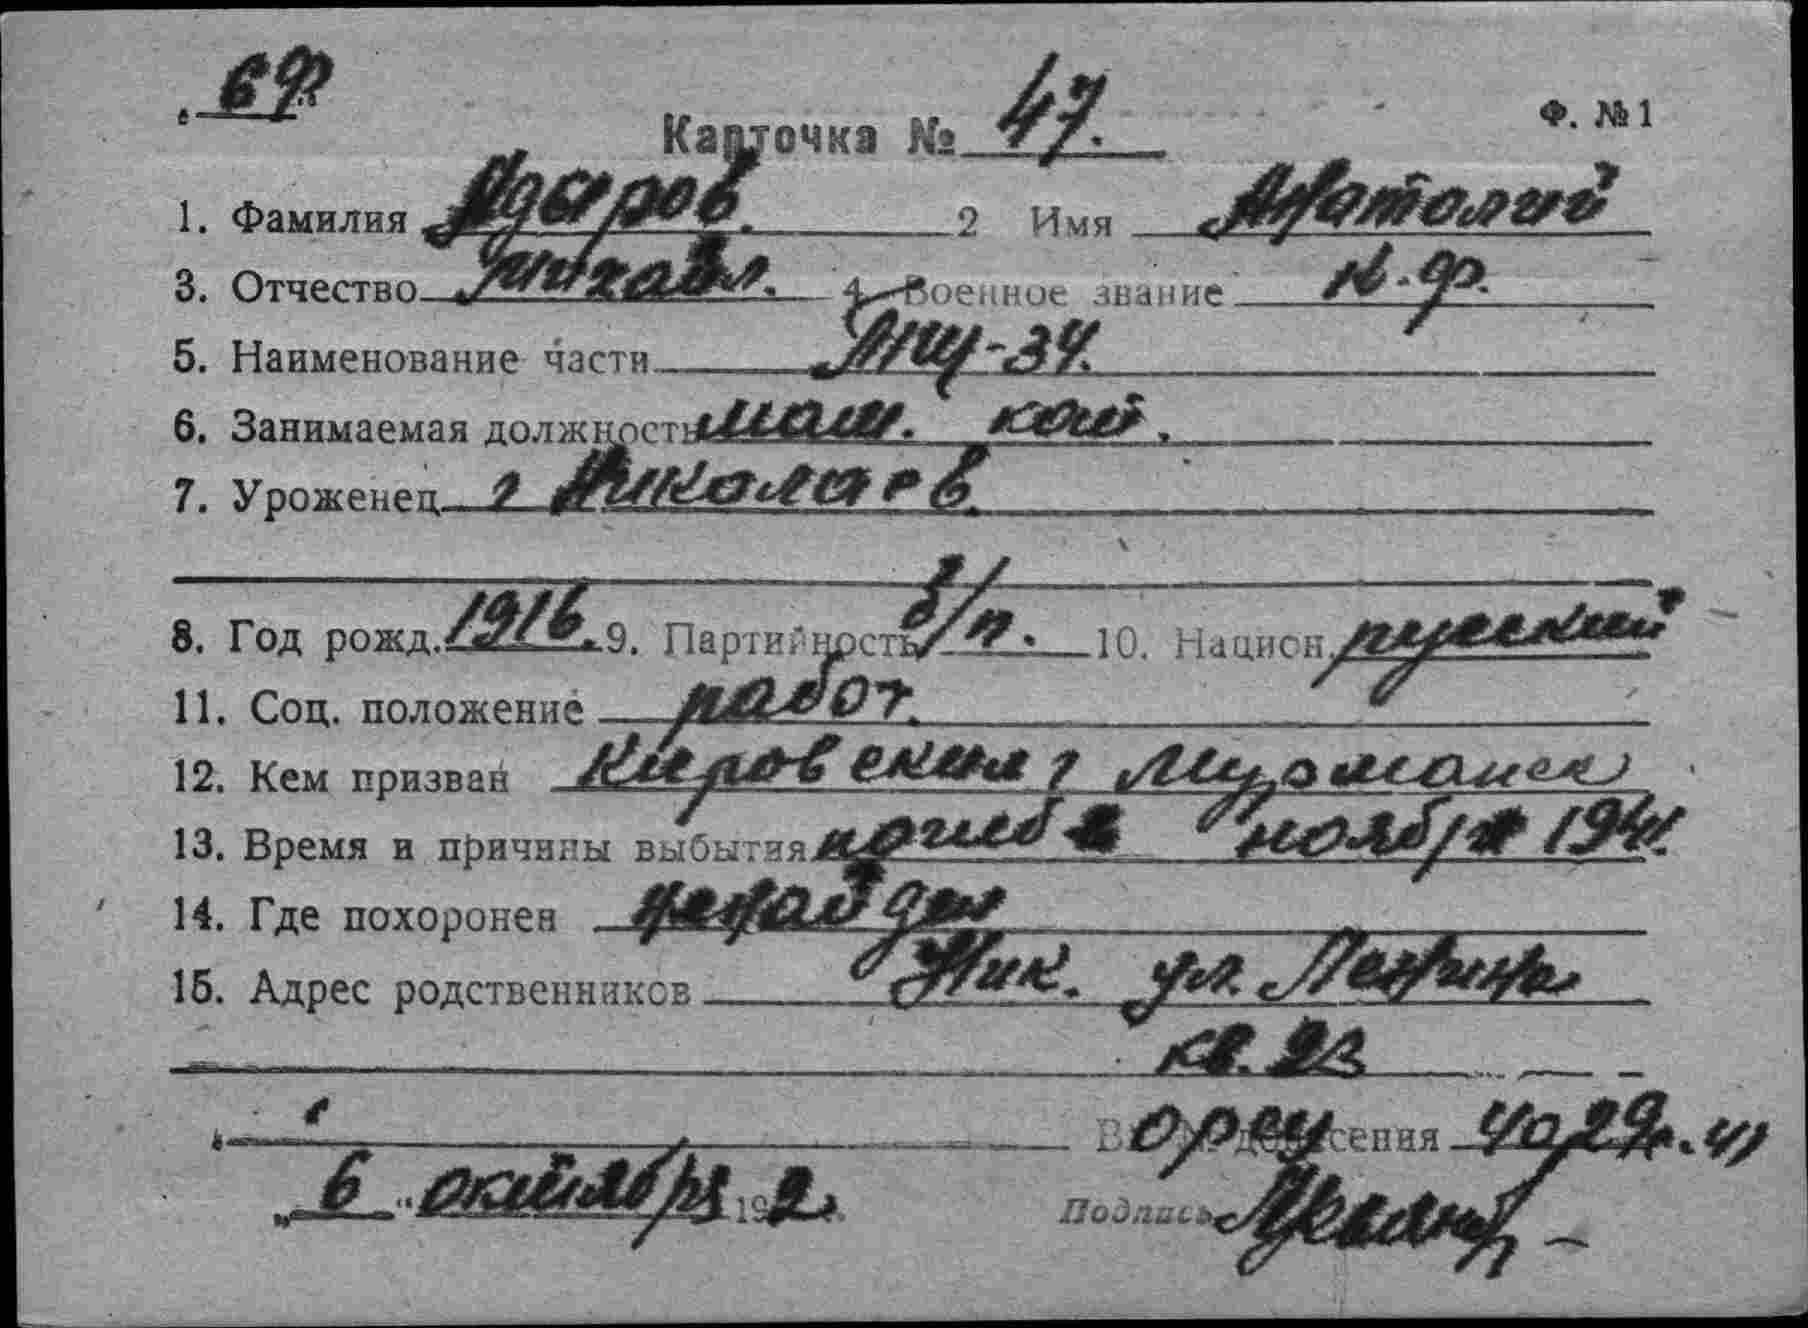 Карточка № 47. Ф. № 1
1. Фамилия 2 Имя Анатолий
3. Отчество Михайл. 4. Военное звание к.ф.
5. Наименование части ТЩ-34.
6. Занимаемая должность маш. кот.
7. Уроженец г Николаев.
8. Год рожд. 1916. 9. Партийность б/п. 10. Национ. русский
11. Соц. положение работ.
12. Кем призван Кировским г Мурманск
13. Время и причины выбытия погиб в ноября 1941.
14. Где похоронен
15. Адрес родственников Ник. ул. Ленина
кв. 23
В донесения 4029
„ 6 " октября 1942.
Подпись